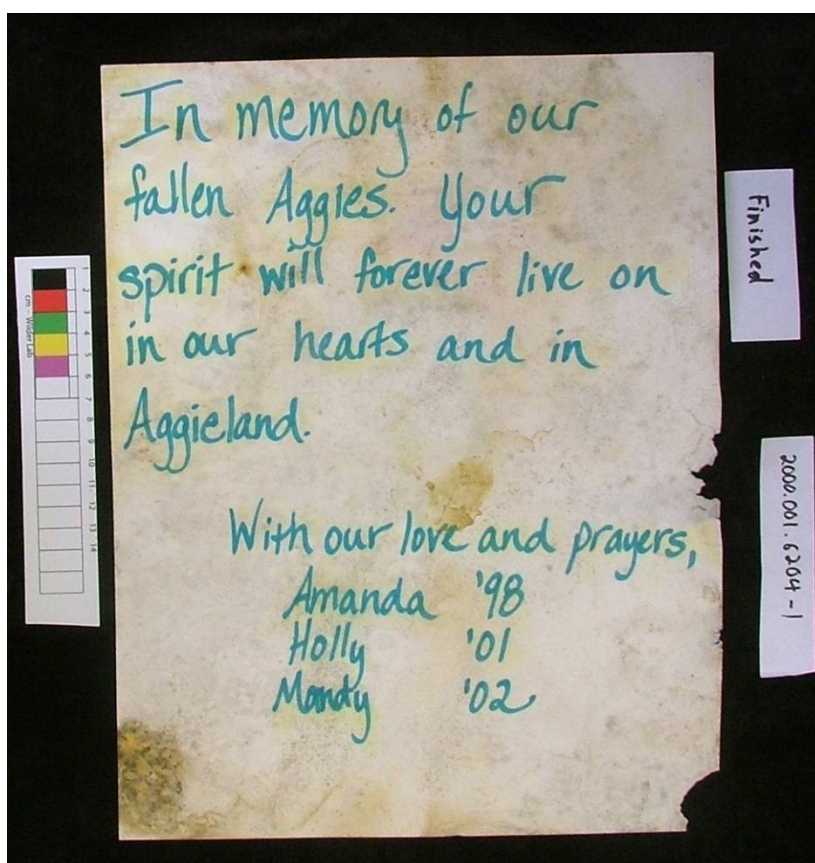 In memory of our
fallen Aggies. Your
spirit will forever live on
in our hearts and in
Aggieland.
With our love and prayers,
Amanda '98
Holly '01
Mandy '02
Finished
2000.001.6204-1
cm - Wilder Lab
1 2 3 4 5 6 7 8 9 10 11 12 13 14